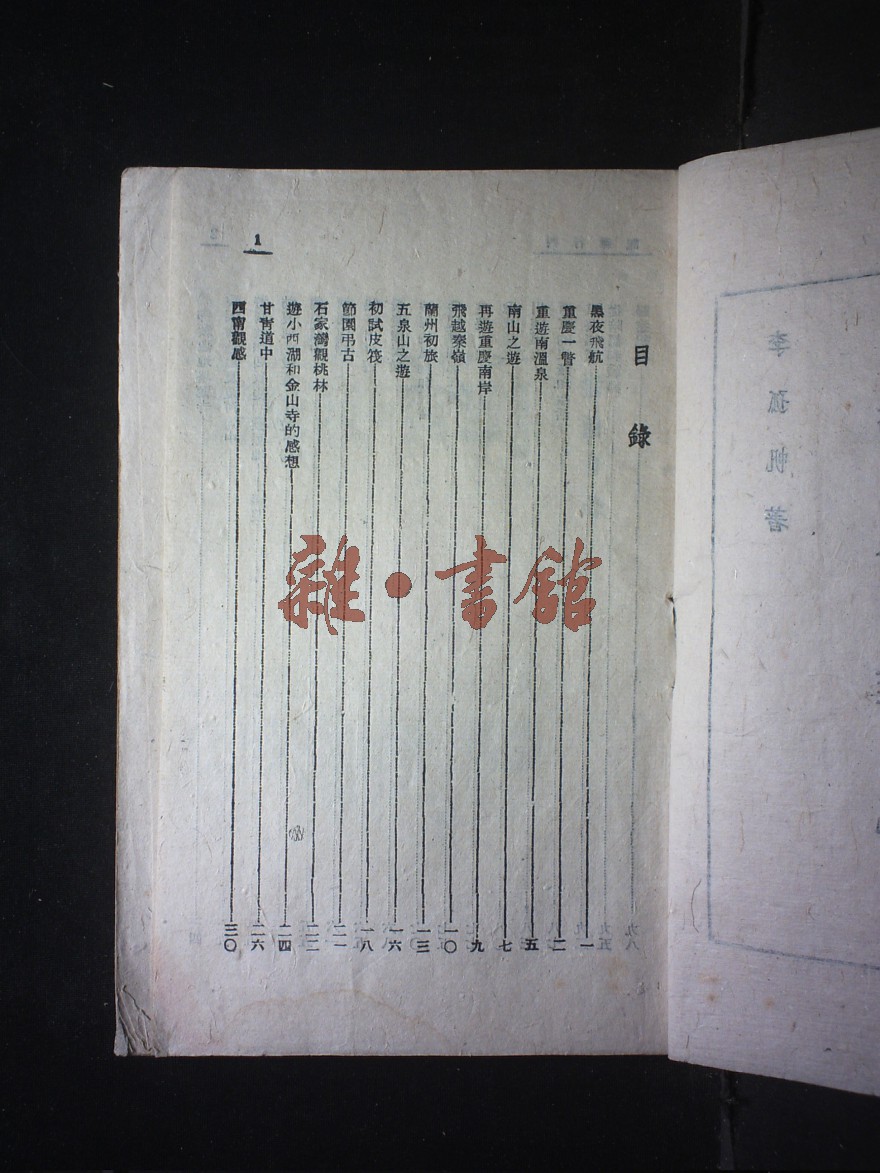 目錄
黑夜飛航 一
重慶一瞥 二
重遊南溫泉 五
南山之遊 七
再遊重慶南岸 九
飛越秦嶺 一〇
蘭州初旅 一三
五泉山之遊 一六
初試皮筏 一八
節園弔古 二一
石家灣觀桃林 二二
遊小西湖和金山寺的感想 二四
甘靑道中 二六
西甯觀感 三〇
1
李孤帆著
雜·書館